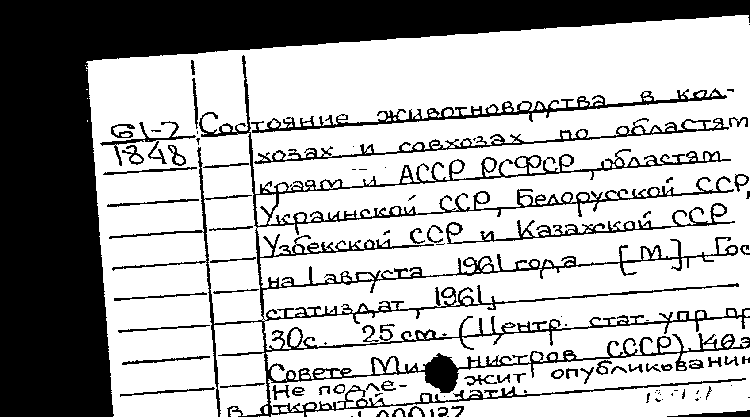 61-7 Состояние животноводства в кол-
1848 хозах и совхозах по областям
краям и АССР РСФСР, областям
Украинской ССР, Белорусской ССР,
Узбекской ССР и Казахской ССР
на 1 августа 1961 года [М.], Гос
статиздат, 1961.
30с. 25 см. (Центр. стат. упр. пр
Совете Министров СССР). 140э
Не подле- жит опубликованию
в открытой печати.